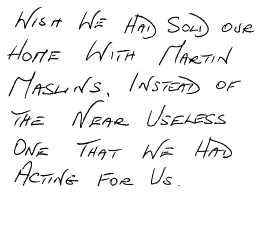 WISH WE HAD SOLD OUR
HOME WITH MARTIN
MASLINS. INSTEAD OF
THE NEAR USELESS
ONE THAT WE HAD
ACTING FOR US.